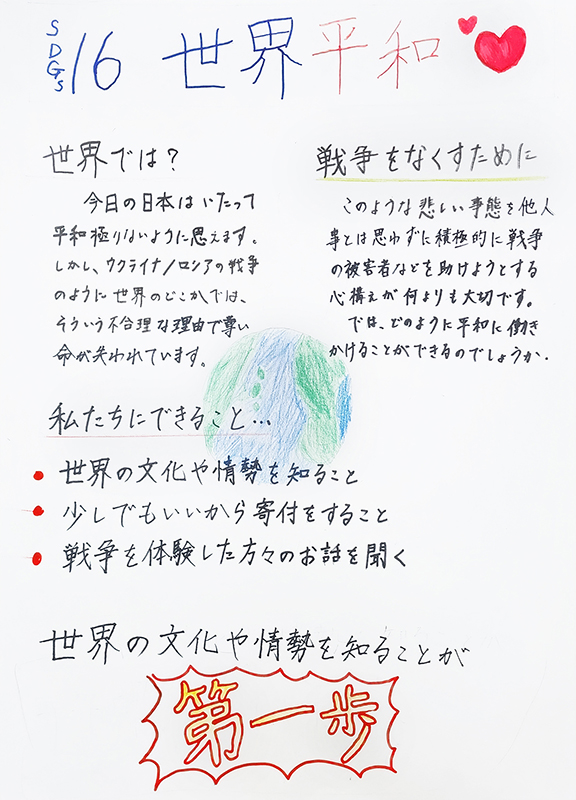 SDGs 16 世界平和
世界では？
今日の日本はいたって
平和極りないように思えます。
しかし、ウクライナ/ロシアの戦争
のように世界のどこかでは、
そういう不合理な理由で尊い
命が失われています。
戦争をなくすために
このような悲しい事態を他人
事とは思わずに積極的に戦争
の被害者などを助けようとする
心構えが何よりも大切です。
では、どのように平和に働き
かけることができるのでしょうか.
私たちにできること…
世界の文化や情勢を知ること
少しでもいいから寄付をすること
戦争を体験した方々のお話を聞く
世界の文化や情勢を知ることが
第一歩